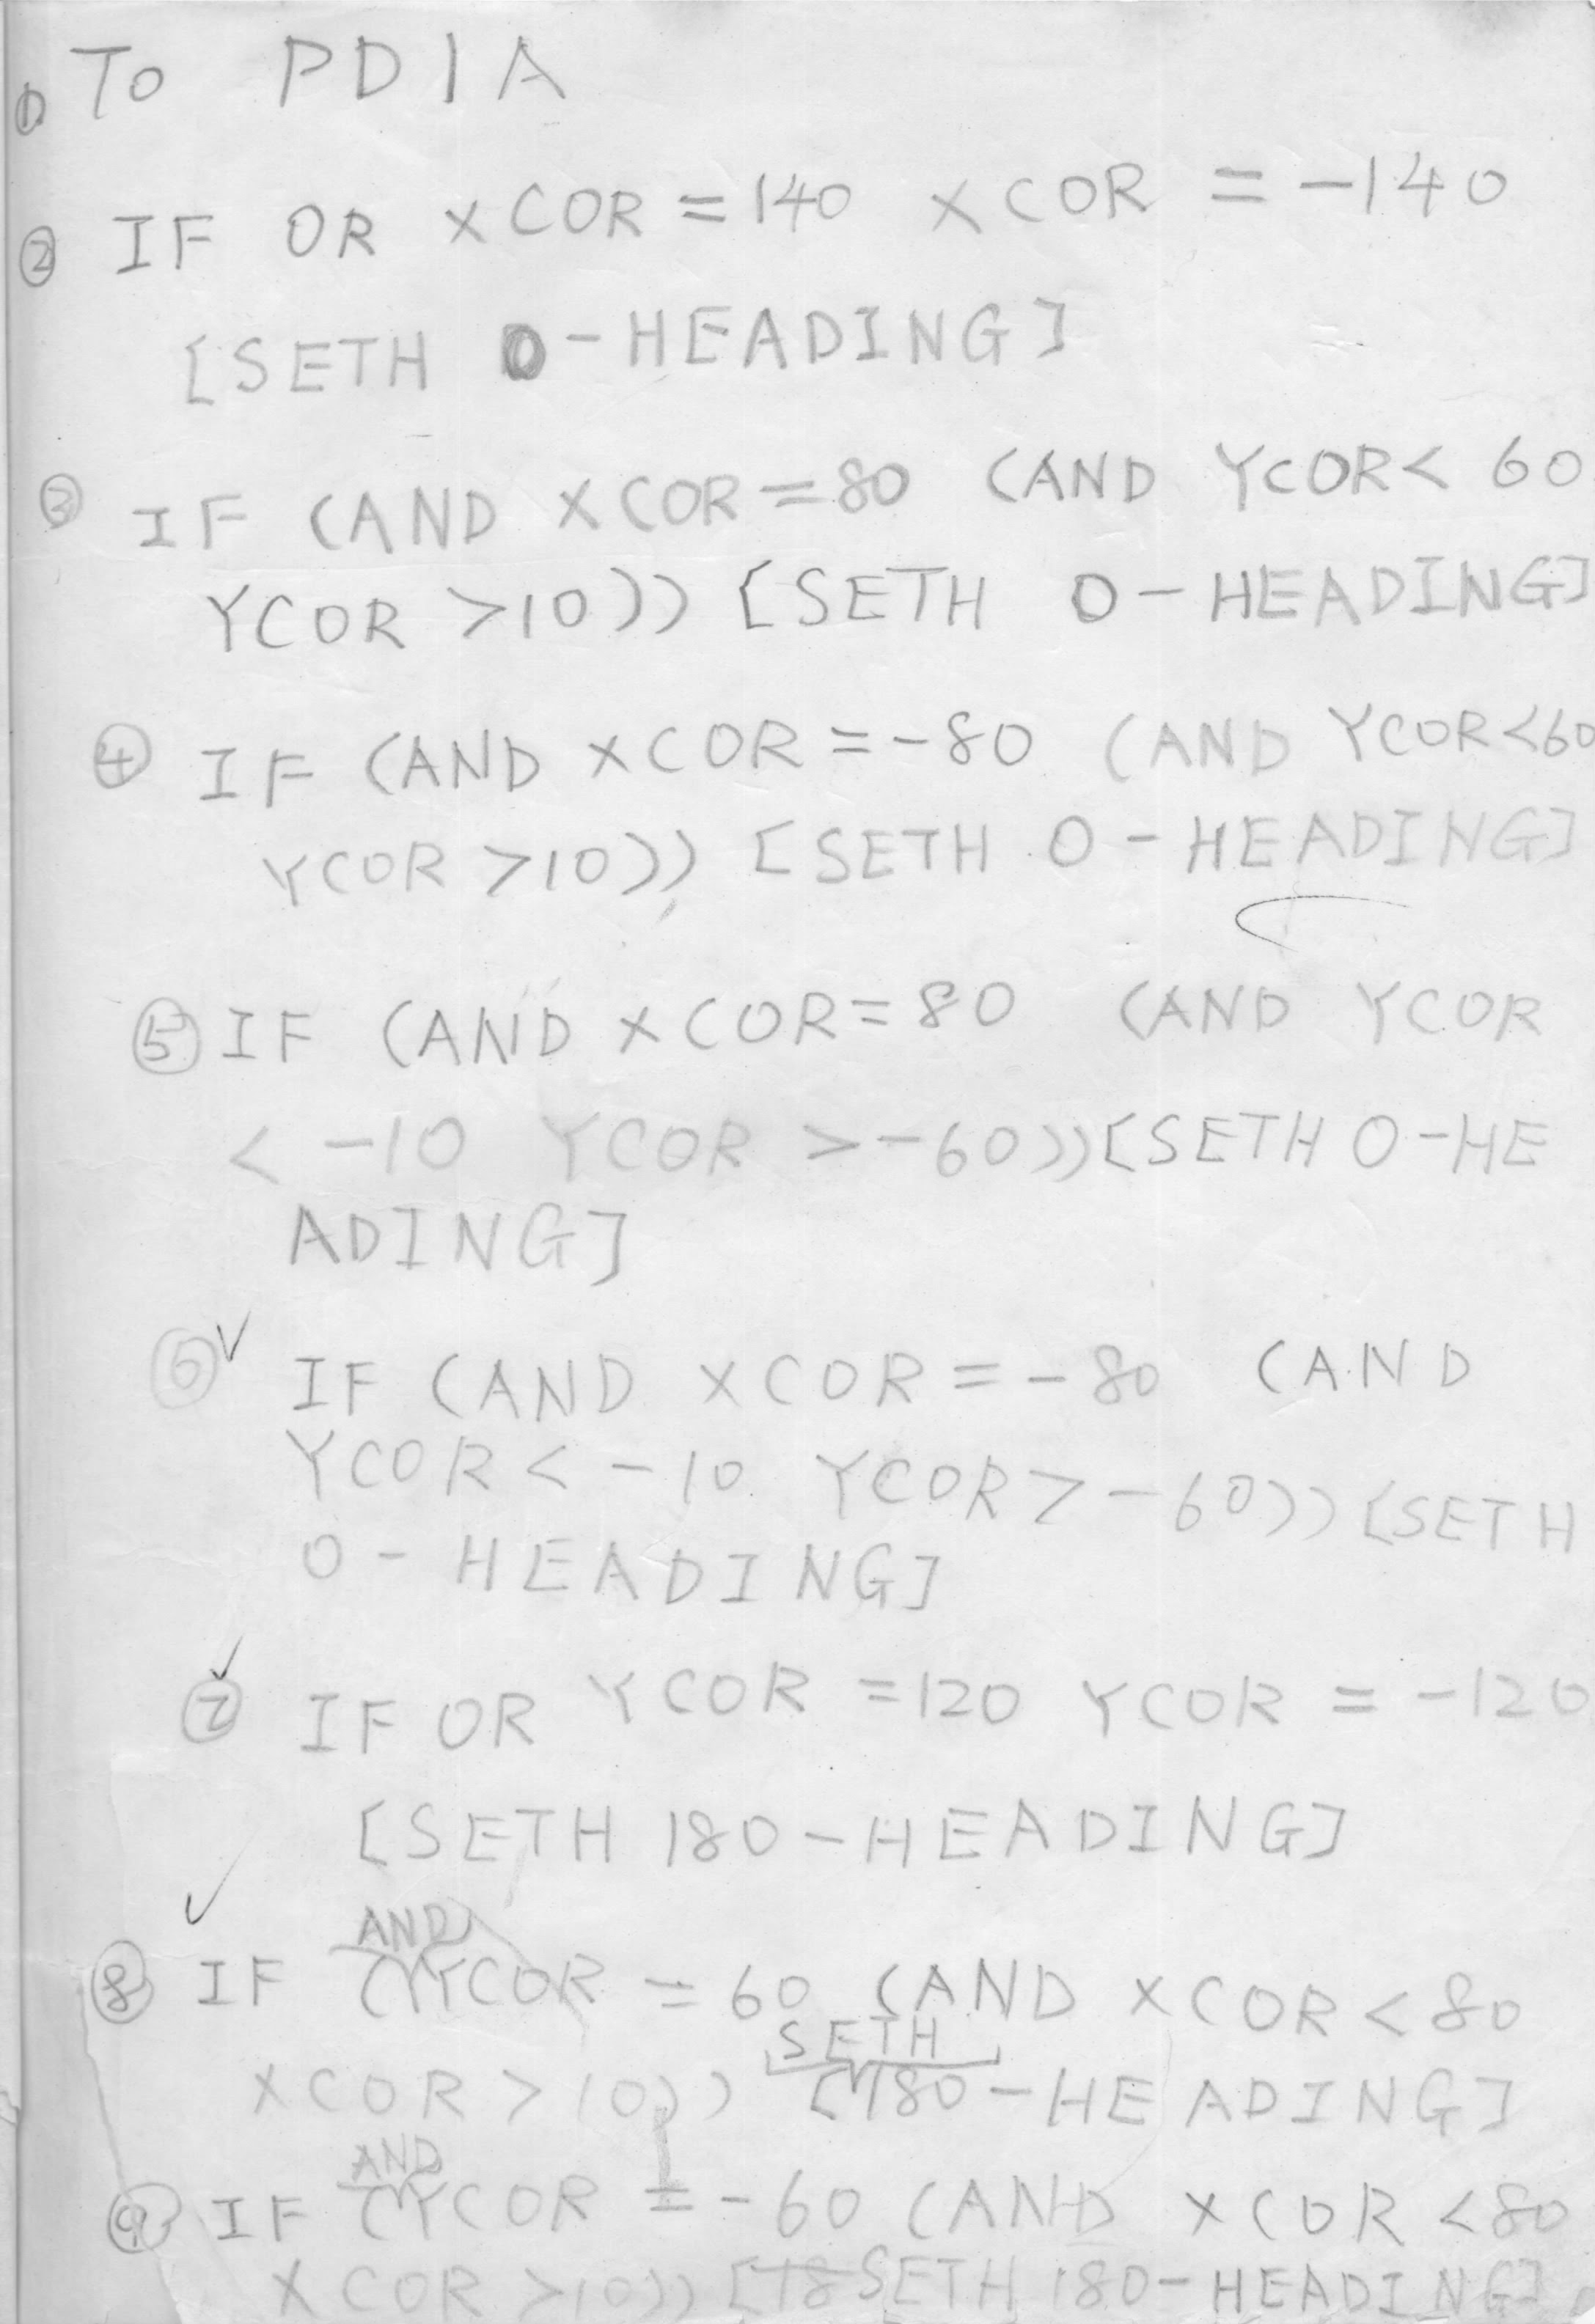 ① TO PDIA
② IF OR XCOR = 140 XCOR = -140
[SETH 0-HEADING]
③ IF (AND XCOR = 80 (AND YCOR < 60
YCOR > 10)) [SETH 0-HEADING]
④ IF (AND XCOR = -80 (AND YCOR < 60
YCOR > 10)) [SETH 0-HEADING]
⑤ IF (AND XCOR = 80 (AND YCOR
< -10 YCOR > -60)) [SETH 0-HE
ADING]
⑥ ✓ IF (AND XCOR = -80 (AND
YCOR < -10 YCOR > -60)) [SETH
0-HEADING]
✓
⑦ IF OR YCOR = 120 YCOR = -120
[SETH 180-HEADING]
✓
AND
⑧ IF (YCOR = 60 (AND XCOR < 80
SETH
XCOR > 10)) [180-HEADING]
AND
⑨ IF (YCOR = -60 (AND XCOR < 80
XCOR > 10)) [18 SETH 180-HEADING]